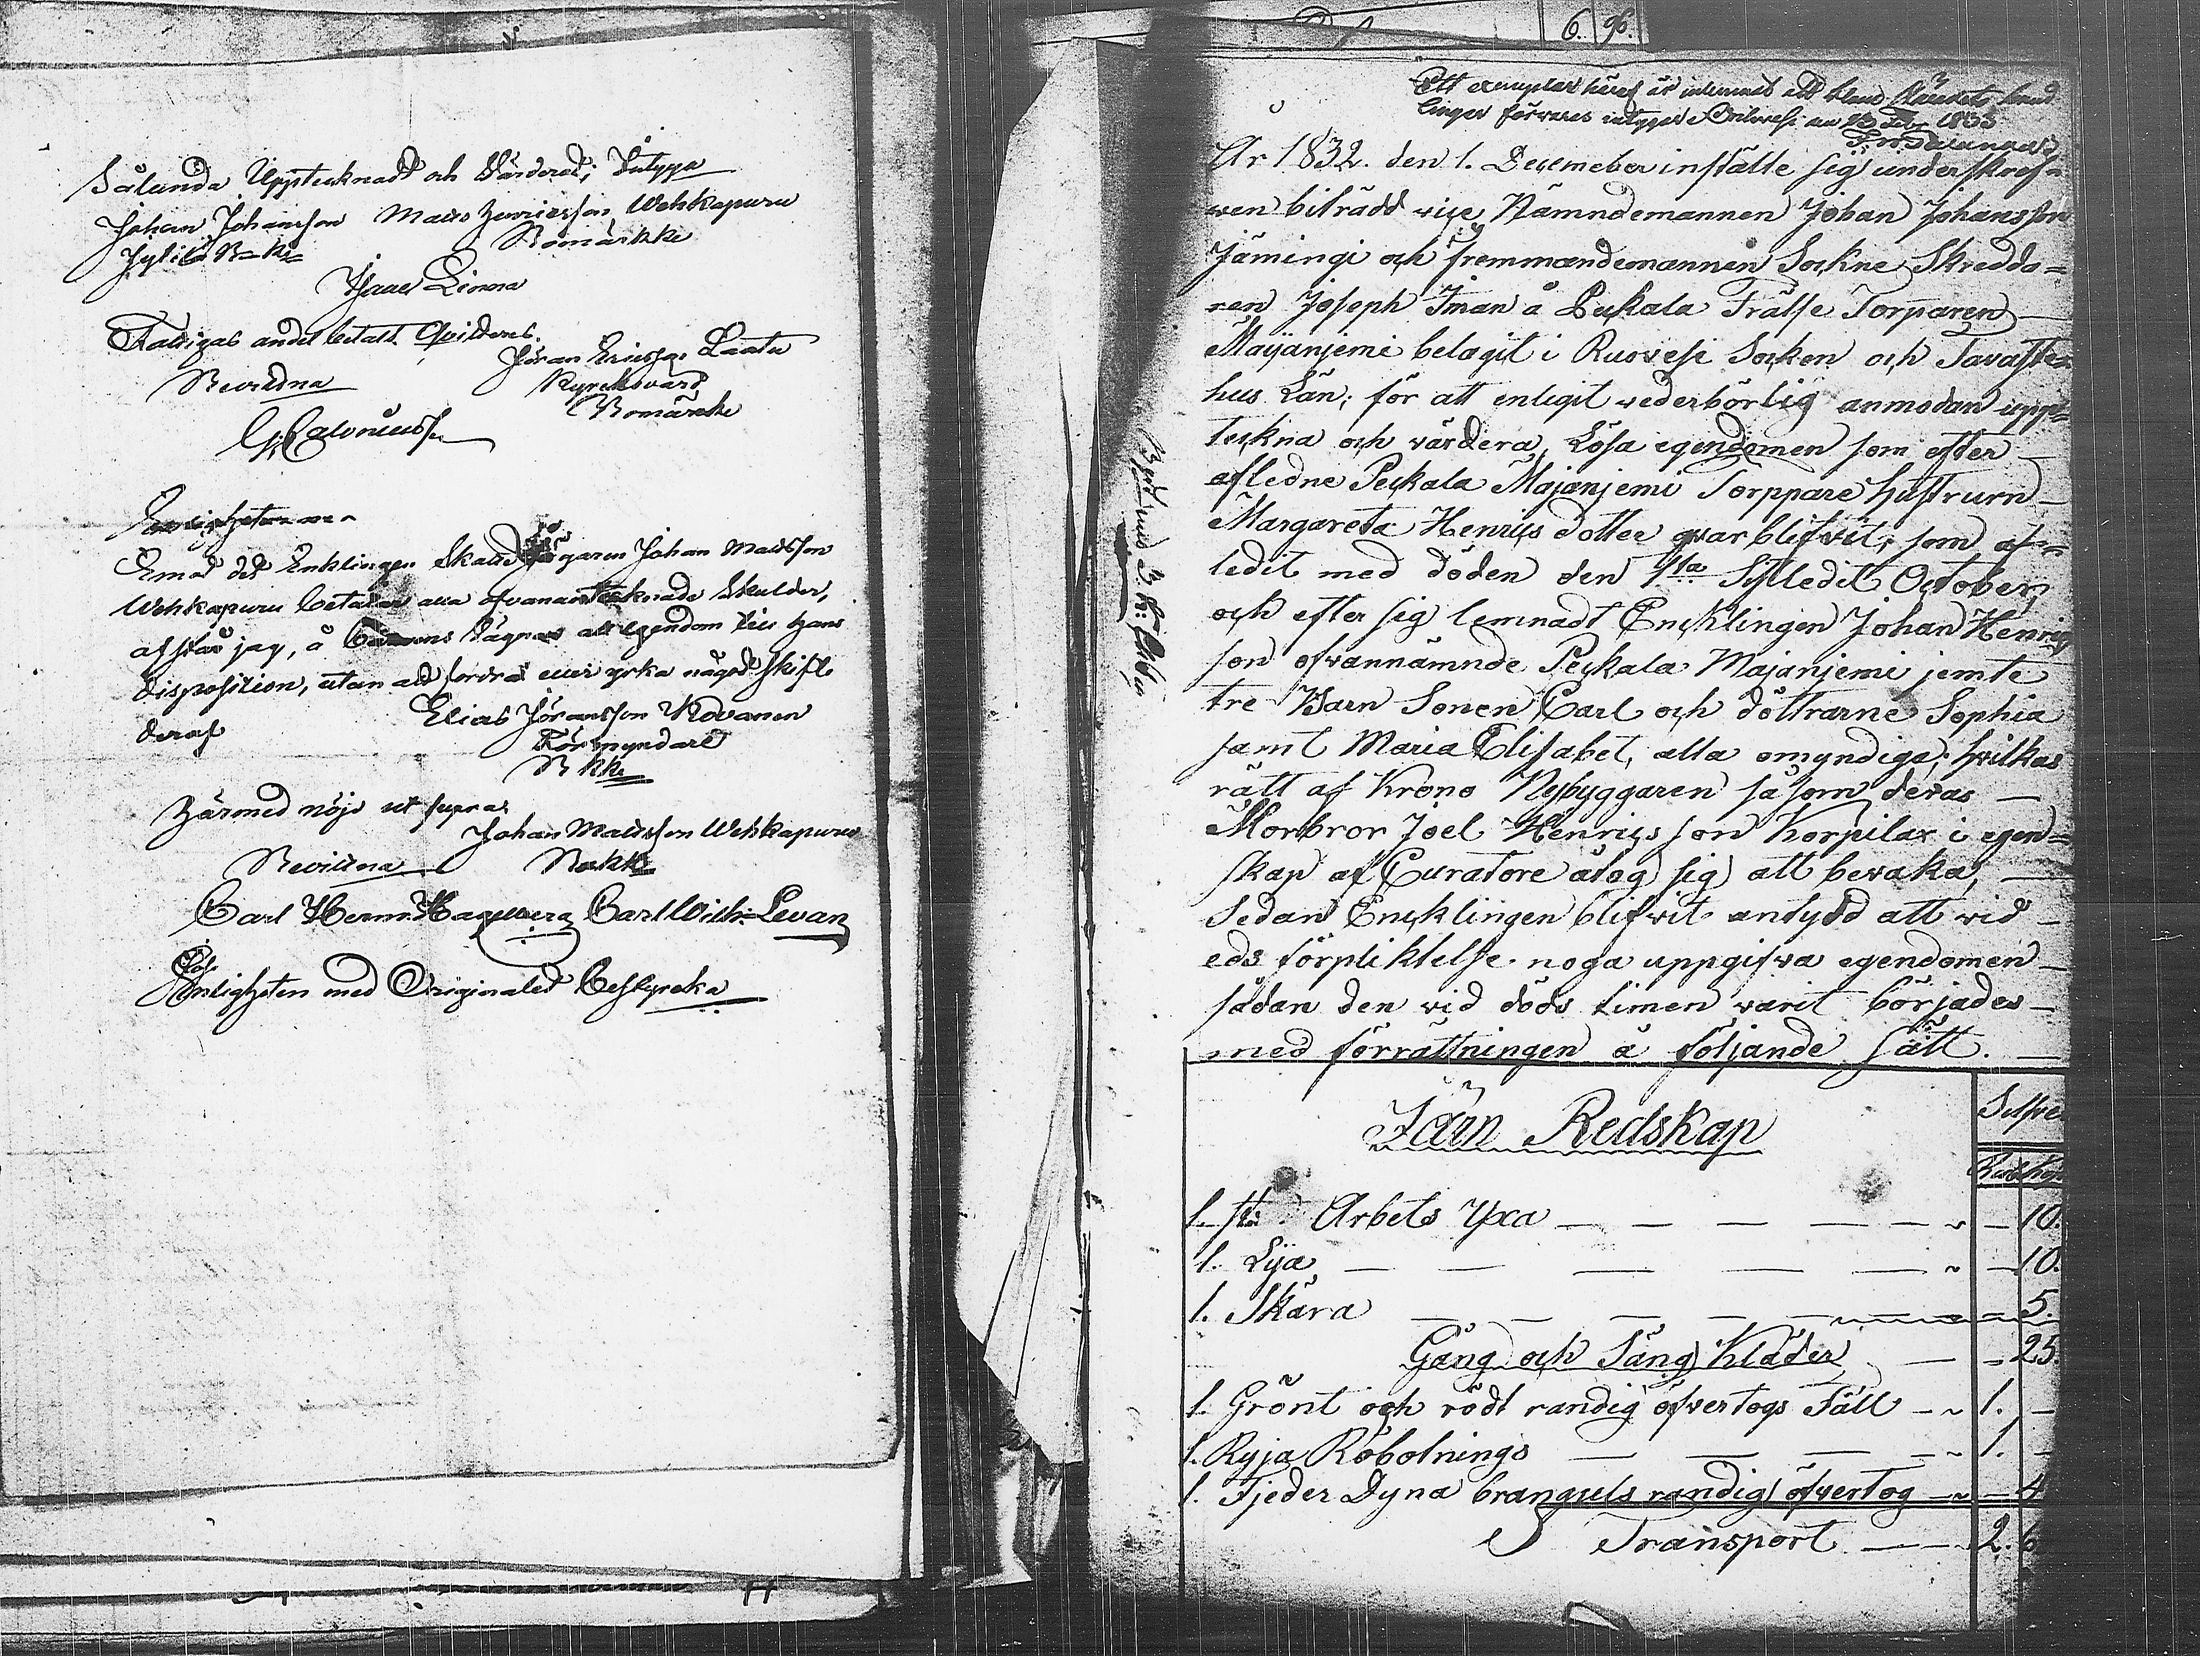 Sålunda Upptecknadt och Värderat; Intyga
Johan Johansson Matts Henricsson Wehkapuru
Jylilä B-kr Bomärkke
Isaac Linna
Fattigas andel betalt Qvitteras.
Bevittna Jöran Ericsson Laato
Kyrckovärd
Bomärcke
G. Calonius
Emot det Enklingen Skatte Johan Mattsson
Wehkapuru betalar alla ofvanantecknade Skulder,
afstår jag, å Barnens vägnar all egendom till hans
disposition, utan att fordra eller yrka något skifte
deraf Elias Jöransson Kovanen
Förmyndare
B kke
Härmed nöjd ut supra
Johan Mattsson Wehkapuru
Bevittna Bokke
Carl Herm: Hagelberg Carl Wilh: Levan
Enligheten med Originalet Bestyrcka
6. 96.
Ett exemplar häraf är inlemnad att bland Rättens hand
lingar förvaras intygar 1833
År 1832. den 1. Decemeber instälte sig underskref=
wen biträdd wice Nämndemannen Johan Johansson
Jämingi och fremmandemannen Sockne Skredda=
ren Joseph Iman å Pekala Frälse Torparen
Majanjemi belagit i Ruovesi Socken och Tavaste=
hus Län; för att enligit vederbörlig anmodan upp=
teckna och värdera, Lösa egendomen som efter
afledne Peckala Majanjemi Torppare hustrurn
Margareta Henrics dotter qvarblifvit; som af=
ledit med döden den 4ta Sistledit October,
och efter sig lemnadt Encklingen Johan Henrics
son ofvannämnde Peckala Majanjemi jemte
tre Barn Sonen Carl och döttrarne Sophia
samt Maria Elisabet, alla omyndiga; hvilkas
rätt af Krono Nybyggaren såsom deras
Morbror Joel Henrics son Korpilax i egen=
skap af Curatore åtog sig att bevaka,
Sedan Encklingen blifvit antydd att vid
eds förpliktelse noga uppgifva egendomen
sådan den vid döds timen varit börjades
med förrättningen å följande sätt.
Järn Redskap Silfve
Rub Kop
1. st: Arbets Yxa 10.
1. Lija 10.
1. Skära 5.
Gång och Säng Kläder 25.
1. Grönt och rödt randig öfvertogs Fäll 1.
1. Ryja Röbotnings 1.
1. Fjeder Dyna branguls randig öfvertog 4
Transport 2. 6